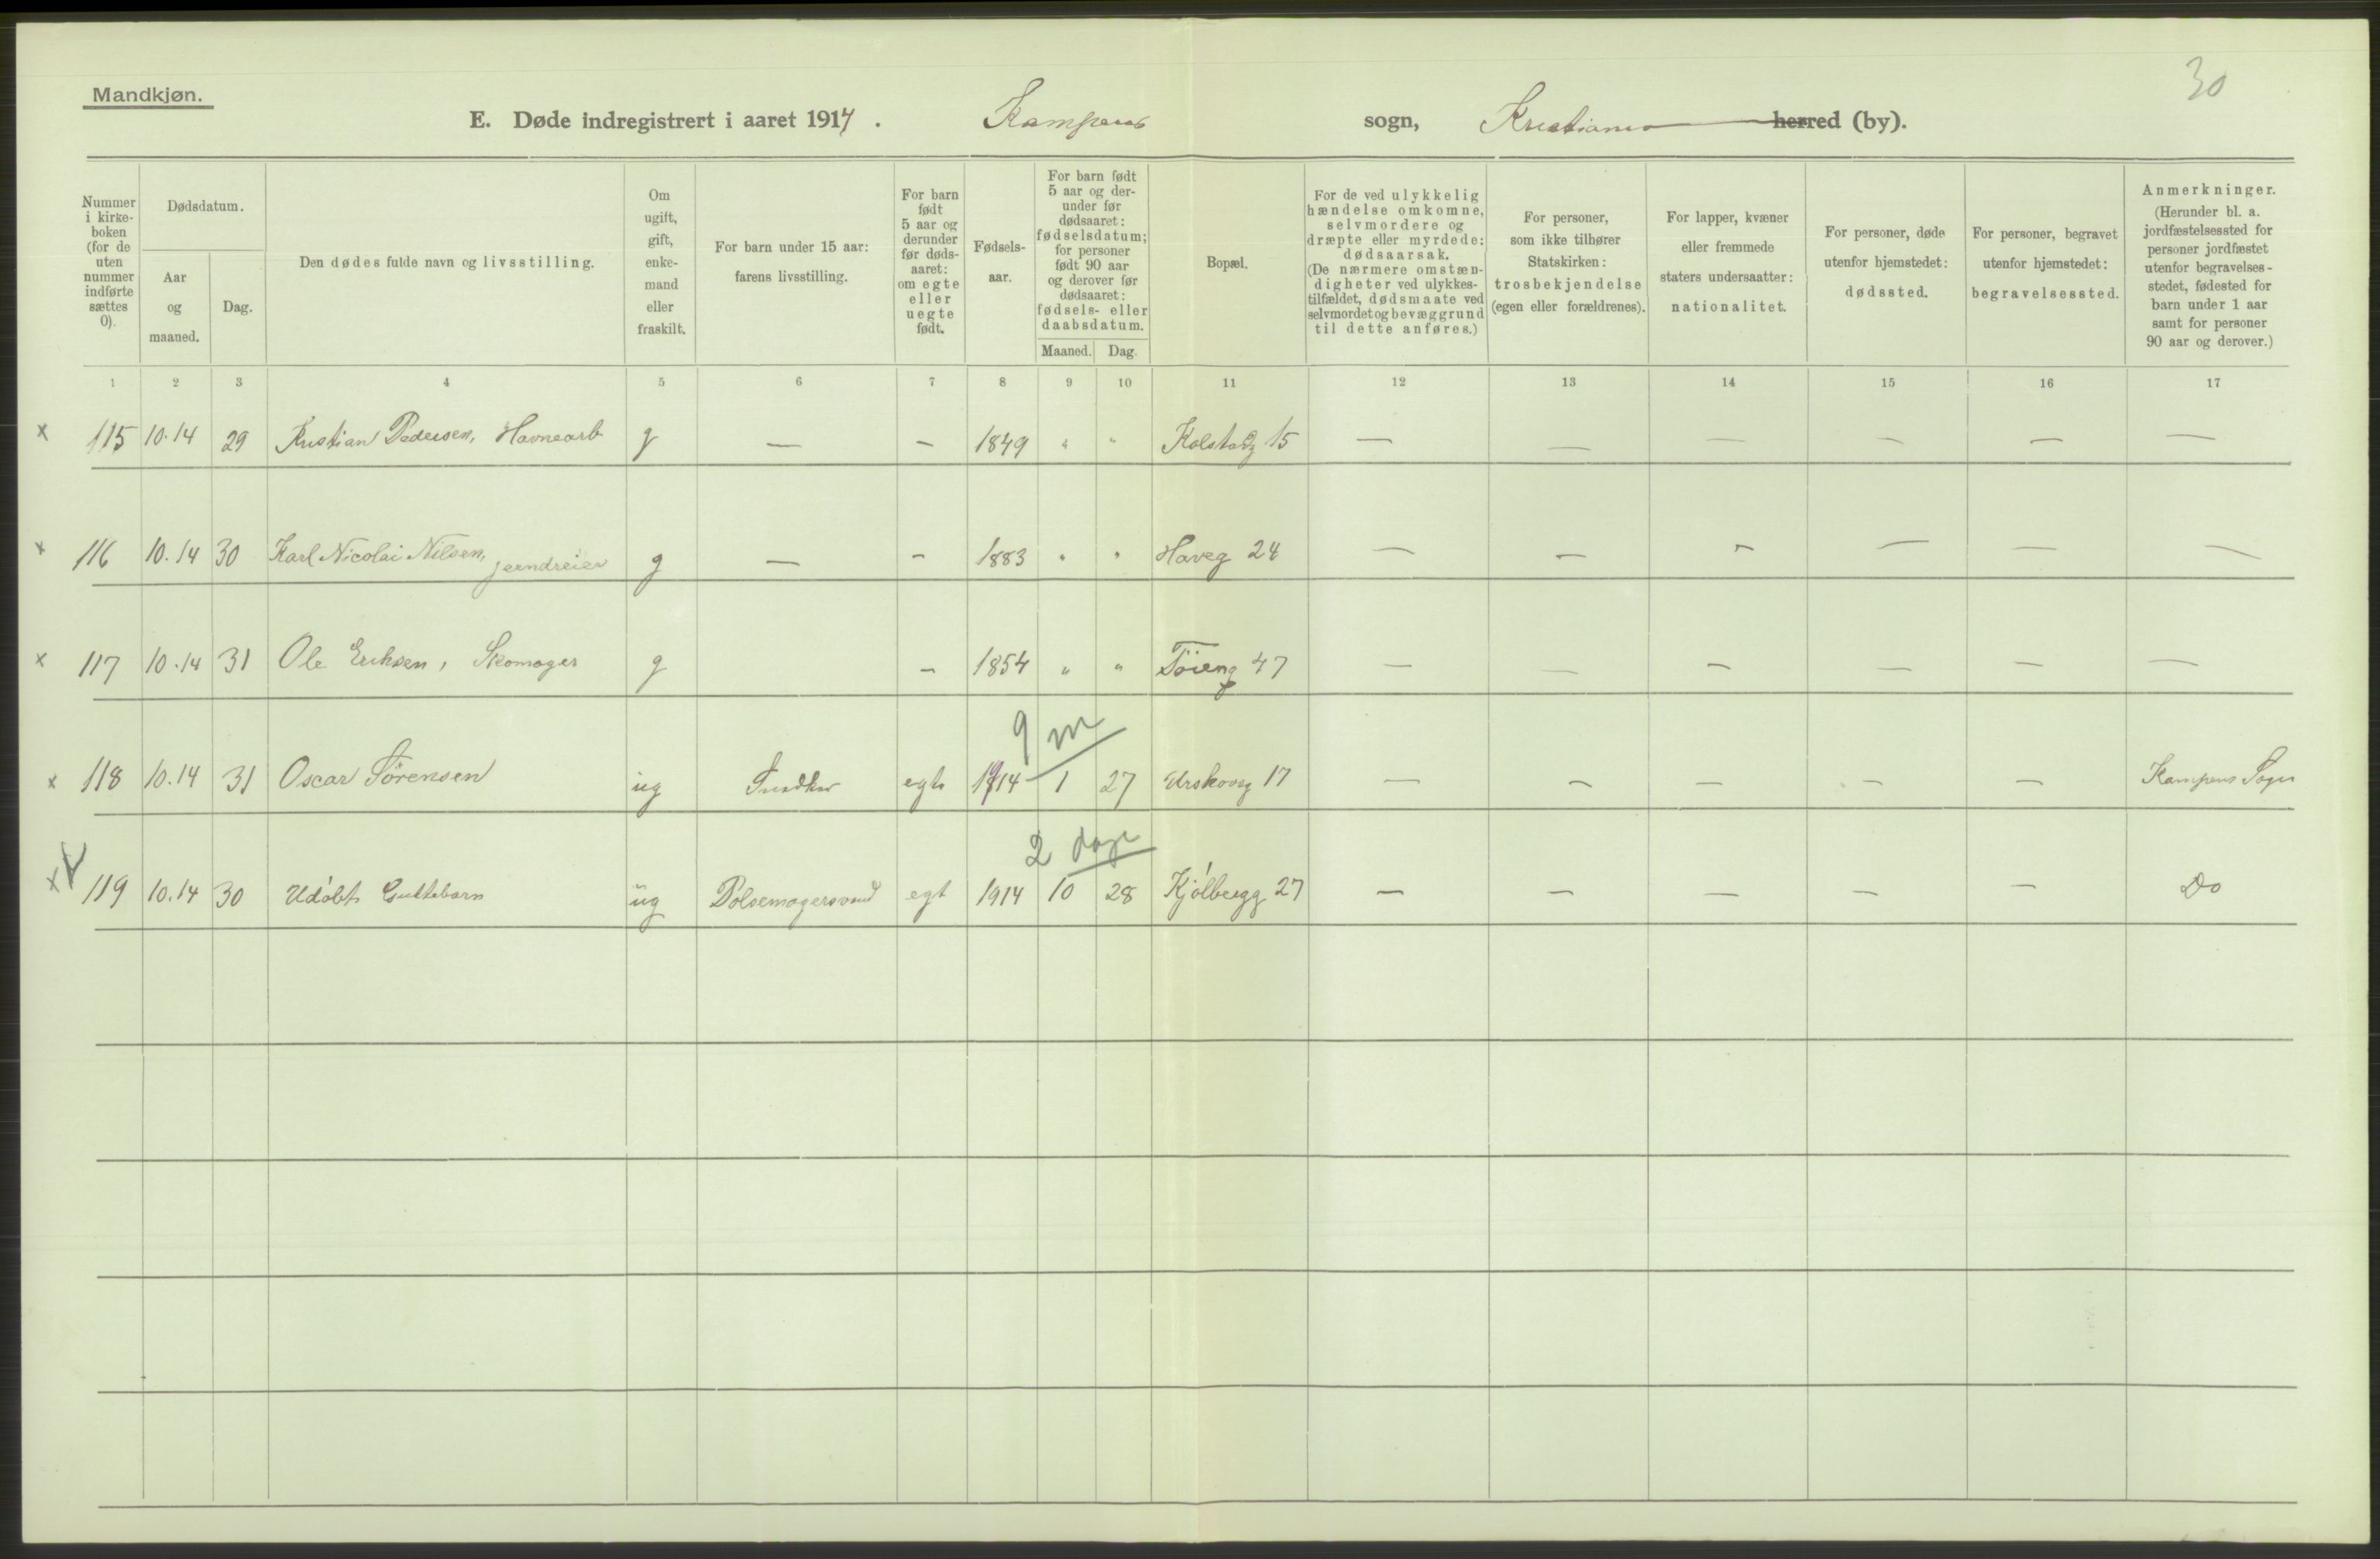 30
Mandkjøn.
E. Døde indregistrert i aaret 1914. Kampens sogn, Kristiania herred (by).
Nummer i kirke-boken (for de uten nummer indførte sættes 0).
Dødsdatum.
Aar og maaned.
Dag.
Den dødes fulde navn og livsstilling.
Om ugift, gift, enke-mand eller fraskilt.
For barn under 15 aar: farens livsstilling.
For barn født 5 aar og derunder før døds-aaret: om egte eller uegte født.
Fødsels-aar.
For barn født 5 aar og der-under før dødsaaret: fødselsdatum; for personer født 90 aar og derover før dødsaaret: fødsels- eller daabsdatum.
Maaned.
Dag.
Bopæl.
For de ved ulykkelig hændelse omkomne, selvmordere og dræpte eller myrdede: dødsaarsak. (De nærmere omstæn-digheter ved ulykkes-tilfældet, dødsmaate ved selvmordet og bevæggrund til dette anføres.)
For personer, som ikke tilhører Statskirken: trosbekjendelse (egen eller forældrenes).
For lapper, kvæner eller fremmede staters undersaatter: nationalitet.
For personer, døde utenfor hjemstedet: dødssted.
For personer, begravet utenfor hjemstedet: begravelsessted.
Anmerkninger. (Herunder bl. a. jordfæstelsessted for personer jordfæstet utenfor begravelses-stedet, fødested for barn under 1 aar samt for personer 90 aar og derover.)
1 2 3 4 5 6 7 8 9 10 11 12 13 14 15 16 17
x 115 10.14 29 Kristian Pedersen, Havnearb g — — 1849 " " Kolstadg 15 — — — — — —
x 116 10.14 30 Karl Nicolai Nilsen, jerndreier g — — 1883 " " Haveg 24 — — — — — —
x 117 10.14 31 Ole Eriksen, Skomager g — 1854 " " Töieng 47 — — — — — —
9 m
x 118 10.14 31 Oscar Sörensen ug Snedker egte 1914 1 27 Urskovsg 17 — — — — — Kampens Sogn
2 dage
x 119 10.14 30 Udöbt Guttebarn ug Pølsemagersvend egt 1914 10 28 Kjölbergg 27 — — — — — Do